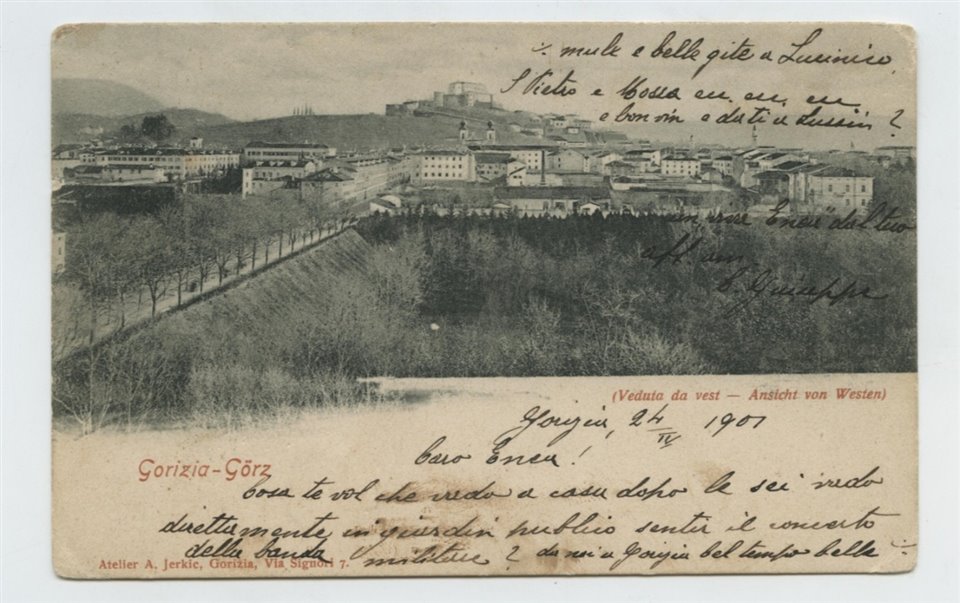 ÷ mule e belle gite a Lucinico,
S Pietro e Mossa ecc, ecc, ecc
e bon vin e da ti a Lussin?
un Enea dal tuo
aff am
G Giuseppe
(Veduta da vest — Ansicht von Westen)
Gorizia, 24/IV 1901
Gorizia-Görz
Caro Enea!
Cosa te vol che vedo a casa dopo le sei vado
direttamente in giardin publico sentir il concerto
della banda militare? da noi a Gorizia bel tempo belle ÷
Atelier A. Jerkic, Gorizia, Via Signori 7.